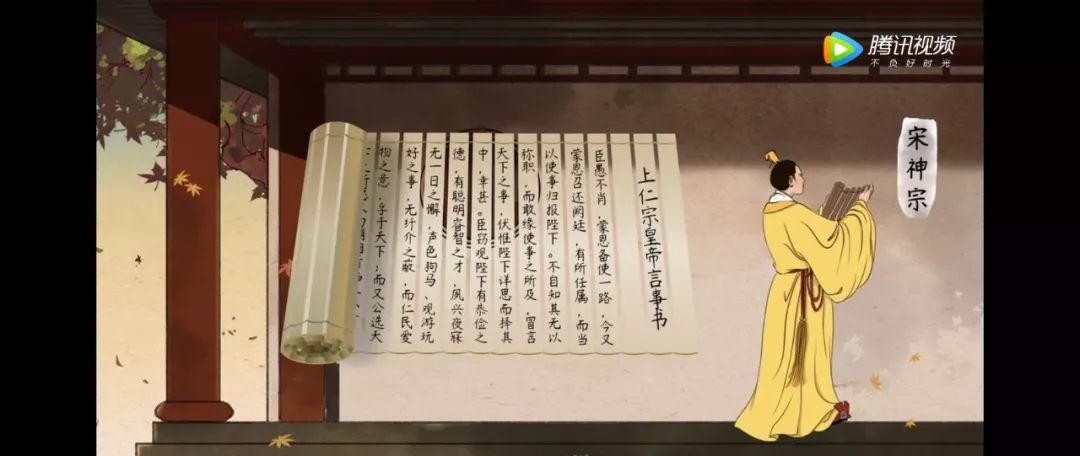 腾讯视频
不负好时光
宋神宗
上仁宗皇帝言事书
臣愚不肖，蒙恩备使一路，今又
蒙恩召还阙廷，有所任属，而当
以使事归报陛下。不自知其无以
称职，而敢缘使事之所及，冒言
天下之事，伏惟陛下详思而择其
中，幸甚。臣窃观陛下有恭俭之
德，有聪明睿智之才，夙兴夜寐
无一日之懈，声色狗马、观游玩
好之事，无纤介之蔽，而仁民爱
物之意，孚于天下；而又公选天